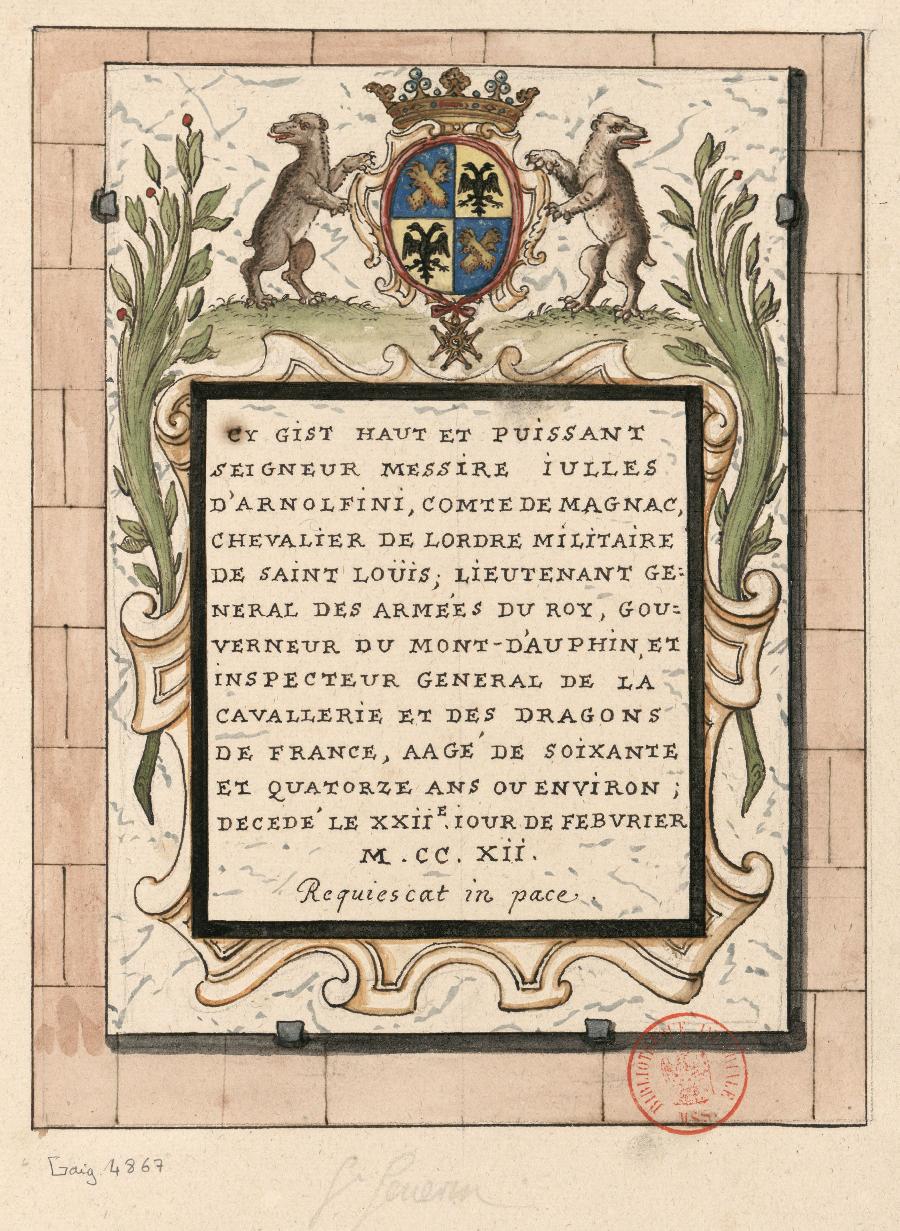 CY GIST HAUT ET PUISSANT
SEIGNEUR MESSIRE IULLES
D'ARNOLFINI, COMTE DE MAGNAC,
CHEVALIER DE LORDRE MILITAIRE
DE SAINT LOÜIS; LIEUTENANT GE=
NERAL DES ARMÉES DU ROY, GOU=
VERNEUR DU MONT-D'AUPHIN, ET
INSPECTEUR GENERAL DE LA
CAVALLERIE ET DES DRAGONS
DE FRANCE, AAGÉ DE SOIXANTE
ET QUATORZE ANS OU ENVIRON ;
DECEDÉ LE XXIIE. IOUR DE FEBVRIER
M . CC. XII.
Requiescat in pace .
BIBLIOTHEQUE IMPERIALE
MSS.
Gaig. 4867
St Severin